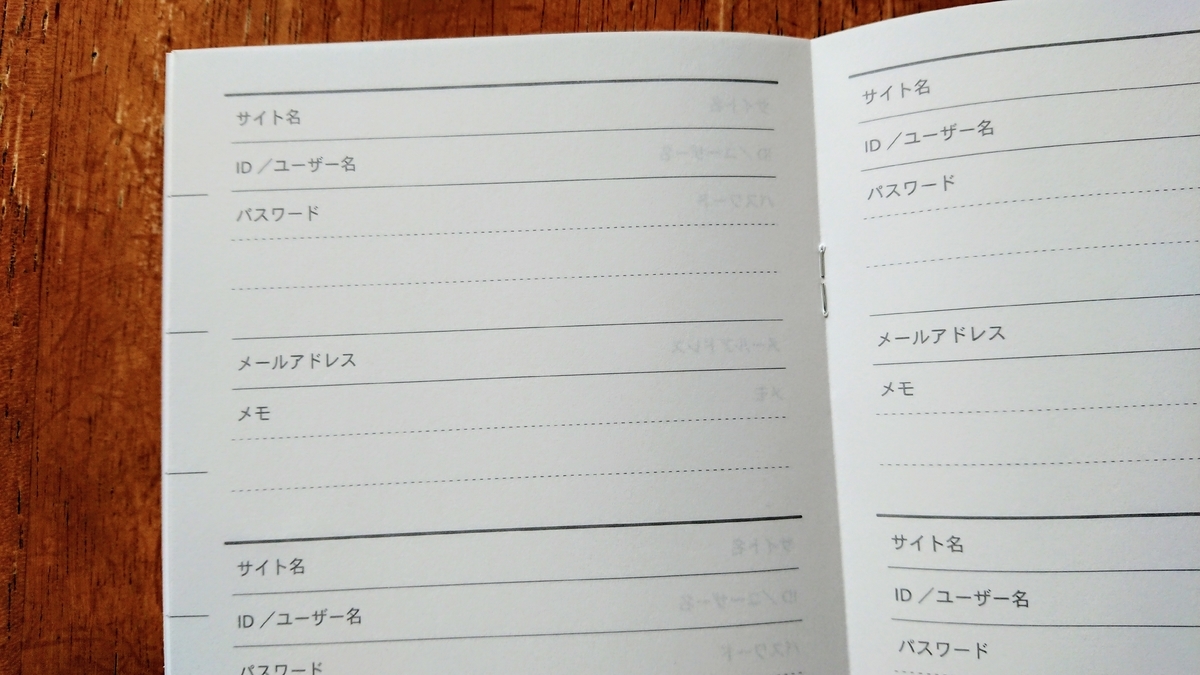 サイト名
ID／ユーザー名
パスワード
メールアドレス
メモ
サイト名
ID／ユーザー名
パスワード
サイト名
ID／ユーザー名
パスワード
メールアドレス
メモ
サイト名
ID／ユーザー名
パスワード